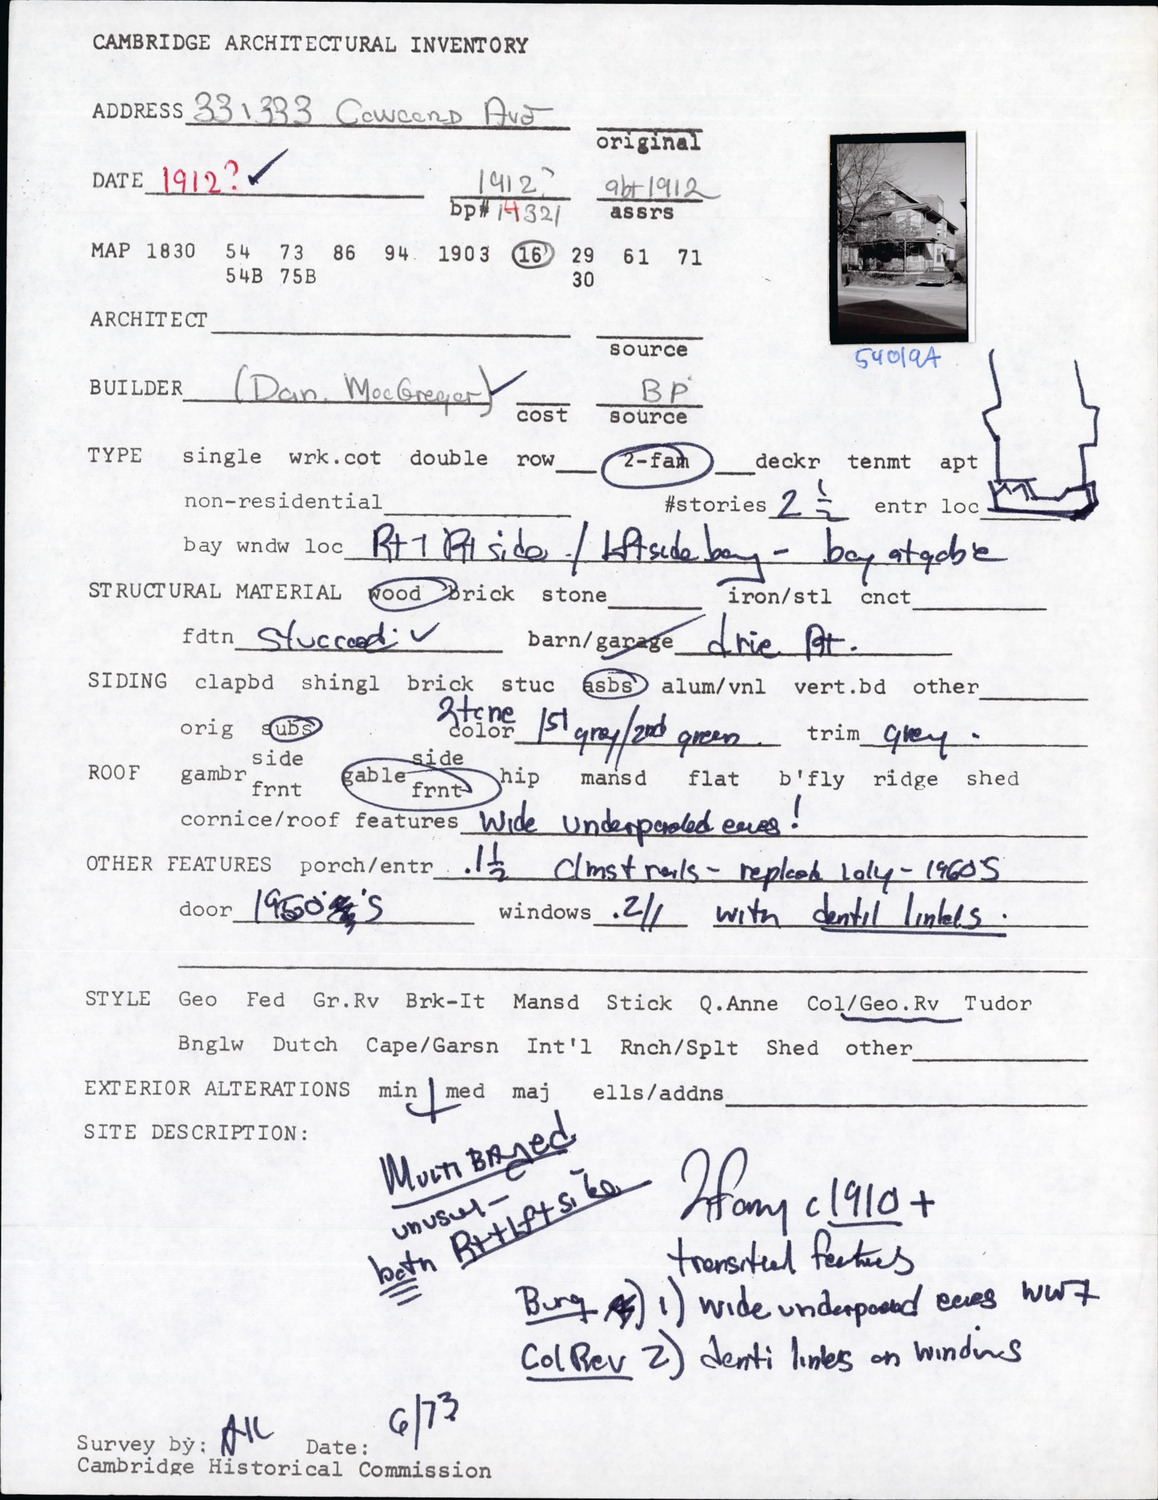 CAMBRIDGE ARCHITECTURAL INVENTORY
ADDRESS 331 333 Concord Ave
original
DATE 1912? ✓ 1912? abt 1912
bp# 14321 assrs
MAP 1830 54 73 86 94 1903 16 29 61 71
54B 75B 30
ARCHITECT
source
54019A
BUILDER (Dan. MacGregor) ✓ BP
cost source
TYPE single wrk.cot double row 2-fam deckr tenmt apt
non-residential #stories 2 1/2 entr loc
bay wndw loc Rt side / Lft side bay - bay at gable
STRUCTURAL MATERIAL wood brick stone iron/stl cnct
fdtn Stuccoed ✓ barn/garage drive Rt.
SIDING clapbd shingl brick stuc asbs alum/vnl vert.bd other
2 tone
orig subs color 1st grey/2nd green trim grey.
side side
ROOF gambr gable hip mansd flat b'fly ridge shed
frnt frnt
cornice/roof features Wide eaves!
OTHER FEATURES porch/entr .1 1/2 rails - 1960's
door 1950's windows .2/1 with dentil lintels.
STYLE Geo Fed Gr.Rv Brk-It Mansd Stick Q.Anne Col/Geo.Rv Tudor
Bnglw Dutch Cape/Garsn Int'l Rnch/Splt Shed other
EXTERIOR ALTERATIONS min med maj ells/addns
SITE DESCRIPTION:
MULTI BAYED
unusul -
both Rt + Lft side
2 fam c 1910 +
features
Bung 1) wide eaves
Col Rev 2) on windows
Survey by: Date: 6/73
Cambridge Historical Commission